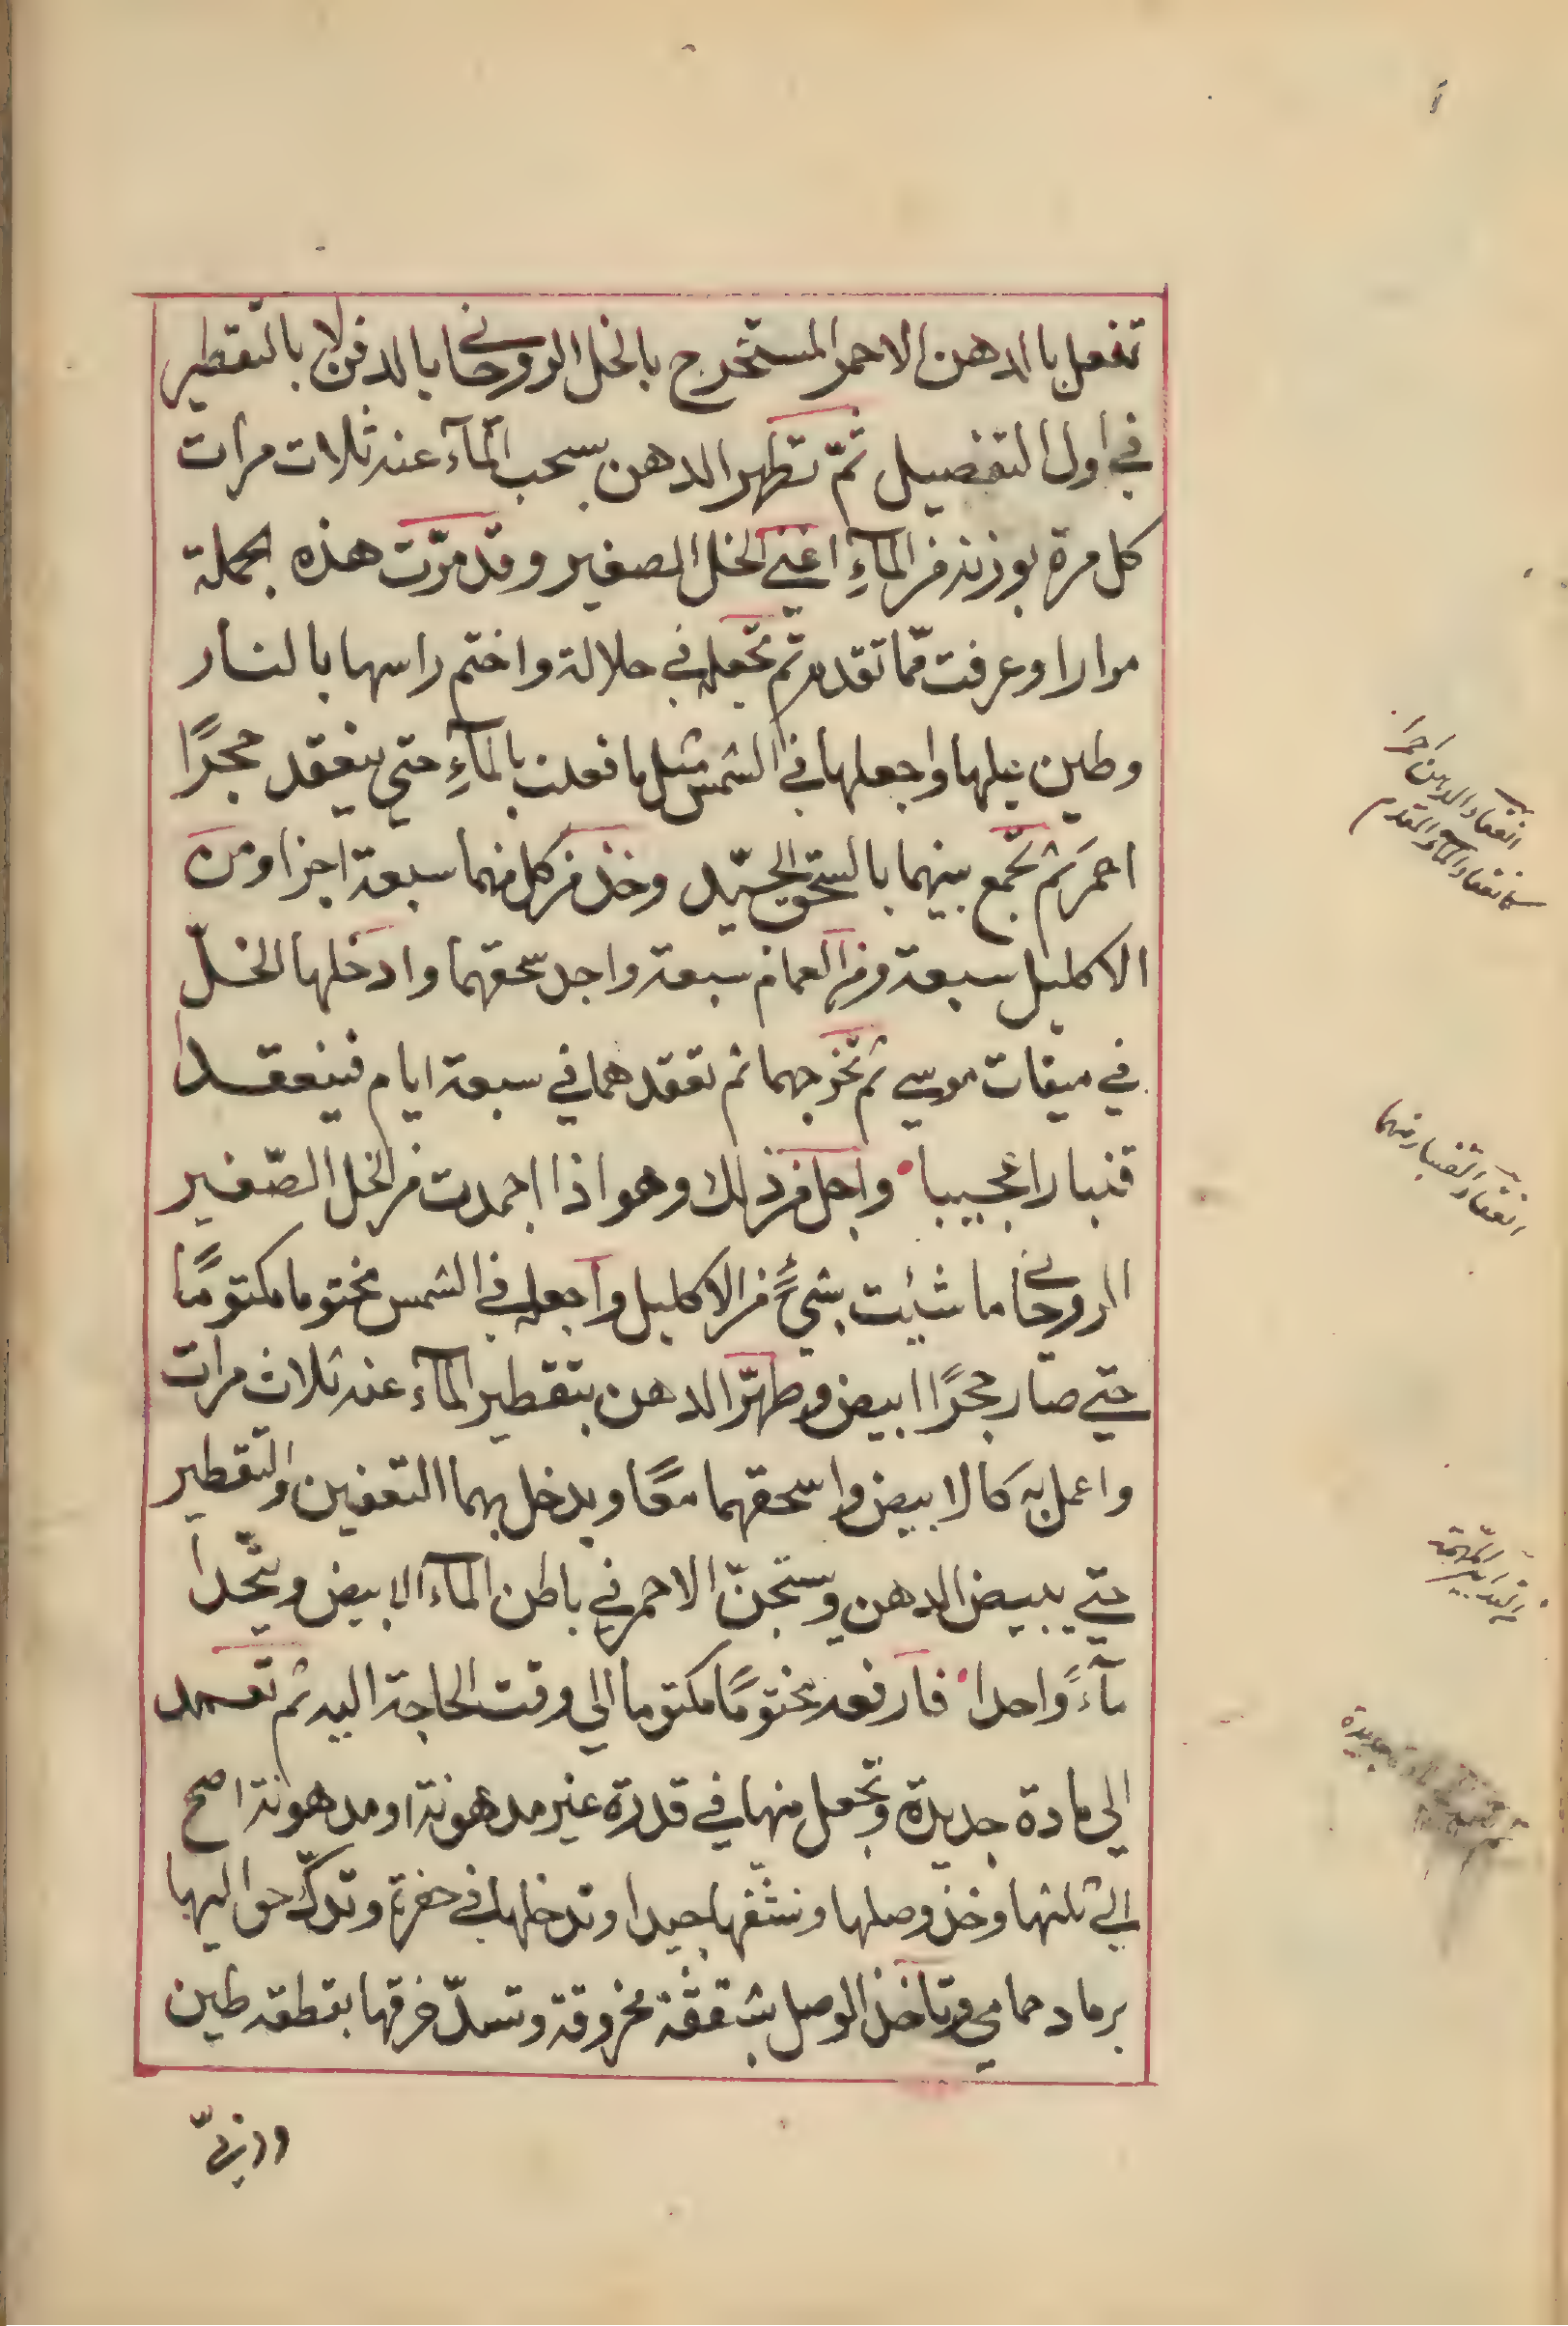 تفعل بالدهن الاحمر المستخرج بالخل الروحاني بالدفن لا بالتقطير
في اول التفصيل ثمّ تطهر الدهن بسحب المآء عنه ثلاث مرات
كل مرة بوزنه من المآءِ اعني الخل الصغير وقد مرّت هذه الجملة
مرارا وعرفت ممّا تقدم ثم تجعله في حلالة واختم راسها بالنار
وطين عليها واجعلها في الشمس مثل ما فعلت بالمآءِ حتي ينعقد حجرًا
احمَر ثم تجمع بينهما بالسّحق الجيّد وخذ من كل منهما سبعة اجزا ومن
الاكليل سبعة ومن العمام سبعة واجد سحقهما وادخلها الخلّ
في ميقات موسي ثم تخرجهما ثم تعقدهما في سبعة ايام فينعقدا
قنبارا عجيبا واجل من ذلك وهو اذا اجمدت من الخل الصّغير
الروحاني ما شئت بشيءٍ من الاكليل واجعله في الشمس مختوما مكتومًا
حتي صار حجرًا ابيض وطهّر الدهن بتقطير المآء عنه ثلاث مرات
واعمل به كالابيض واسحقهما معًا ويدخل بهما التعفين والتقطير
حتي يبيض الدهن ويستجنّ الاحمر في باطن المآء الابيض ويتّحدا
مآءً واحدا فارفعه مختومًا مكتوما الي وقت الحاجة اليه ثم تعمد
الي مادة جديدة وتجعل منها في قدرة غير مدهونة او مدهونة اصح
الي ثلثها وخذ وصلها ونشّفها جيدا وتدخلها في حفرة وتدكّ حواليها
برماد حمامي وتاخذ الوصل بشقفة مخروقة وتسدّ خرقها بقطعة طين
انعقاد الدهن احمرا
كانعقاد المآء المقدم
انعقاد القنبار منهما